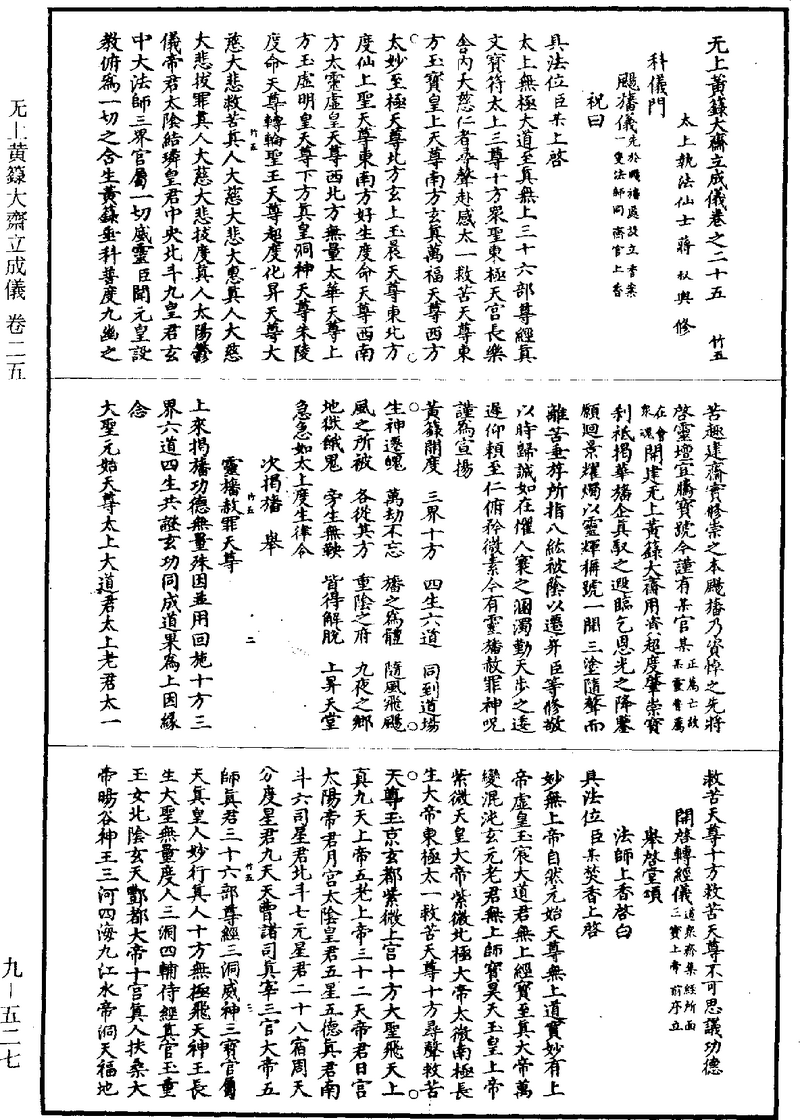 无上黃籙大齋立成儀卷之二十五 竹五
太上執法仙士蔣叔輿修
科儀門
颺旛儀先於颺旛處設立香案一隻法師同齋官上香
祝曰
具法位臣某上啓
太上無極大道至真無上三十六部尊經真
文寶符太上三尊十方衆聖東極天宮長樂
舍內大慈仁者尋聲赴感太一救苦天尊東
方玉寶皇上天尊南方玄真萬福天尊西方
太妙至極天尊北方玄上玉晨天尊東北方
度仙上聖天尊東南方好生度命天尊西南
方太靈虛皇天尊西北方無量太華天尊上
方玉虛明皇天尊下方真皇洞神天尊朱陵
度命天尊轉輪聖王天尊超度化昇天尊大
慈大悲救苦真人大慈大悲大惠真人大慈
大悲拔罪真人大慈大悲拔度真人太陽鬱
儀帝君太陰結璘皇君中央北斗九皇君玄
中大法師三界官屬一切威靈臣聞元皇設
教俯爲一切之含生黃籙垂科普度九幽之
苦趣建齋實修崇之本颺旛乃資悼之先將
啓靈壇宜騰寶號今謹有某官某正薦亡故某靈普薦
在會衆魂開建无上黃籙大齋用資超度肇崇寶
刹祗揭華旛企真馭之遐臨乞恩光之降鑒
願迴景耀燭以靈輝稱號一聞三塗隨聲而
離苦垂旍所指八紘被蔭以遷昇臣等修敬
以時歸誠如在懼人寰之溷濁勤天步之逶
遲仰賴至仁俯矜微素今有靈旛赦罪神呪
謹爲宣揚
黃籙開度 三界十方 四生六道 同到道場
生神遷魄 萬劫不忘 旛之爲體 隨風飛颺
風之所被 各從其方 重陰之府 九夜之鄉
地獄餓鬼 旁生無鞅 皆得解脫 上昇天堂
急急如太上度生律令
次揭旛 舉
靈旛赦罪天尊
上來揭旛功德無量殊因並用回施十方三
界六道四生共證玄功同成道果爲上因緣
念
大聖元始天尊太上大道君太上老君太一
救苦天尊十方救苦天尊不可思議功德
開啓轉經儀道衆齋集經所面三寶上帝前序立
舉啓堂頌
法師上香啓白
具法位臣某焚香上啓
妙無上帝自然元始天尊無上道寶妙有上
帝虛皇玉宸大道君無上經寶至真大帝萬
變混沌玄元老君無上師寶昊天玉皇上帝
紫微天皇大帝紫微北極大帝太微南極長
生大帝東極太一救苦天尊十方尋聲救苦
天尊玉京玄都紫微上宮十方大聖飛天上
真九天上帝五老上帝三十二天帝君日宮
太陽帝君月宮太陰皇君五星五德真君南
斗六司星君北斗七元星君二十八宿周天
分度星君九天天曹諸司真宰三官大帝五
師真君三十六部尊經三洞威神三寶官屬
天真皇人妙行真人十方無極飛天神王長
生大聖無量度人三洞四輔侍經真官玉童
玉女北陰玄天酆都大帝十宮真人扶桑大
帝暘谷神王三河四海九江水帝洞天福地
无上黃籙大齋立成儀 卷二五
九—五二七